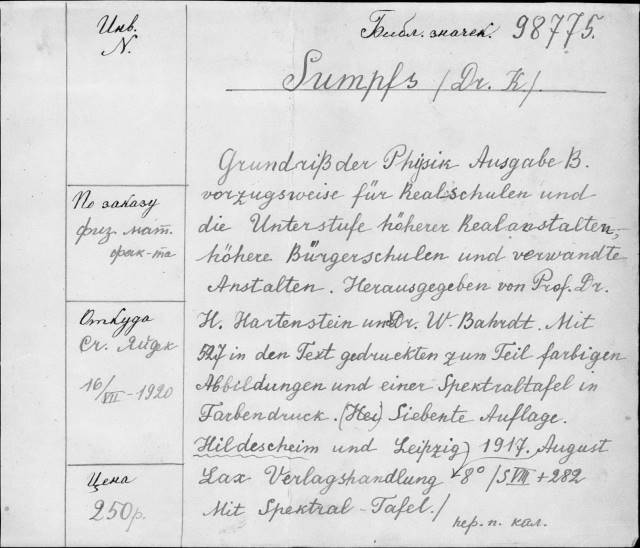 Инв.
N.
Библ. значек. 98775.
Sumpfs (Dr. K).
Grundriß der Physik Ausgabe B.
vorzugsweise für Realschulen und
die Unterstufe höherer Realanstalten,
höhere Bürgerschulen und verwandte
Anstalten. Herausgegeben von Prof. Dr.
H. Hartenstein und Dr. W. Bahrdt. Mit
527 in den Text gedruckten zum Teil farbigen
Abbildungen und einer Spektraltafel in
Farbendruck. (Hei) Siebente Auflage.
Hildescheim und Leipzig) 1917. August
Lax Verlagshandlung 8° /S VIII + 282
Mit Spektral-Tafel./
пер. п. кал.
По заказу
физ. мат.
фак-та
Откуда
Ст.
16/VII-1920
Цена
250 р.